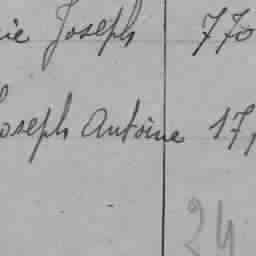 ie Joseph 770
Joseph Antoine 17,
24